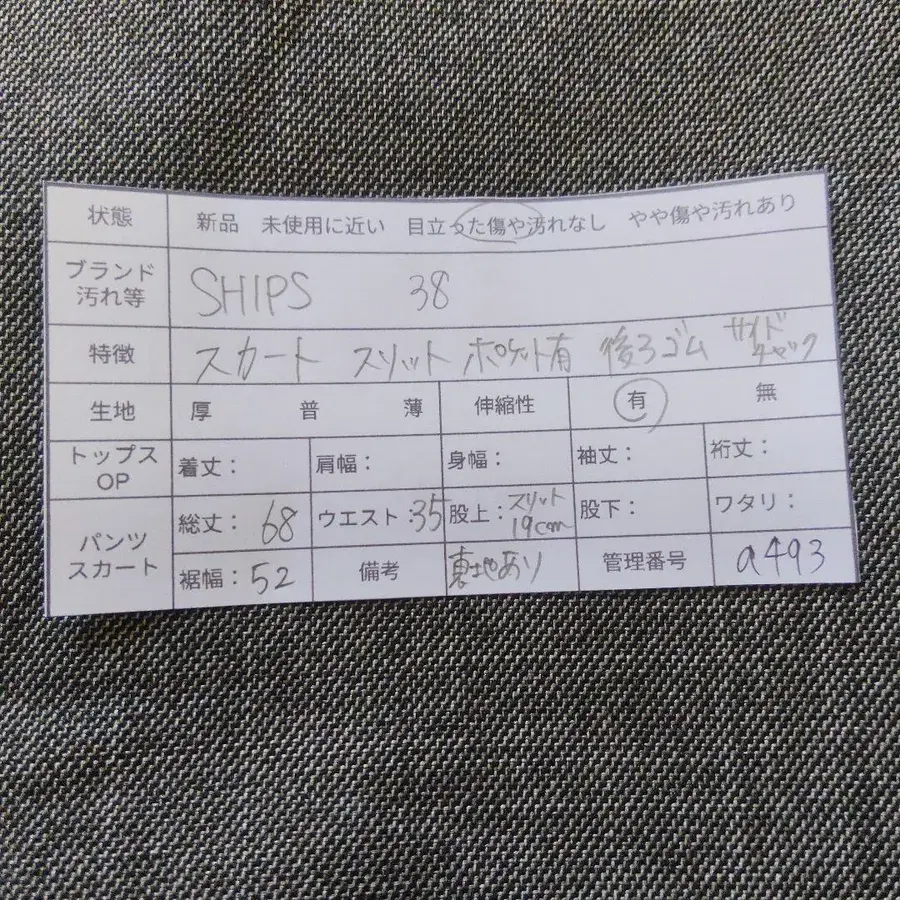 状態 新品 未使用に近い 目立った傷や汚れなし やや傷や汚れあり
ブランド
汚れ等 SHIPS 38
特徴 スカート スリット ポケット有 後ろゴム サイド
チャック
生地 厚 普 薄 伸縮性 有 無
トップス
OP 着丈： 肩幅： 身幅： 袖丈： 裄丈：
パンツ
スカート 総丈：68 ウエスト：35 股上：スリット
19cm 股下： ワタリ：
裾幅：52 備考 裏地あり 管理番号 a493